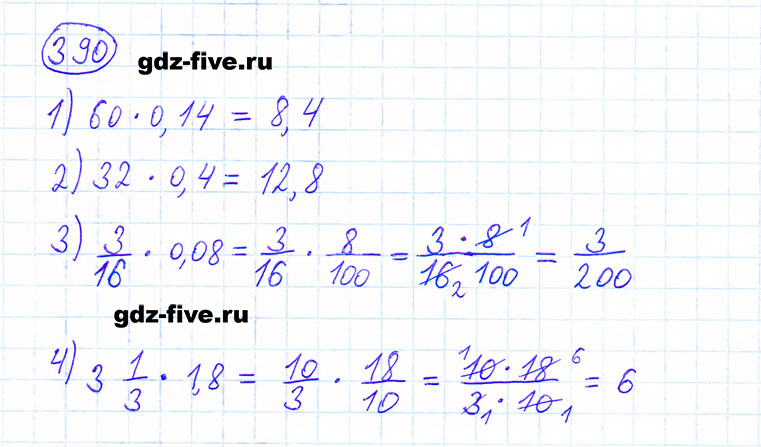 390
gdz-five.ru
1) 60 · 0,14 = 8,4
2) 32 · 0,4 = 12,8
3) 3/16 · 0,08 = 3/16 · 8/100 = 3 · 8 1/16 2 100 = 3/200
gdz-five.ru
4) 3 1/3 · 1,8 = 10/3 · 18/10 = 1 10 · 18 6/3 1 · 10 1 = 6